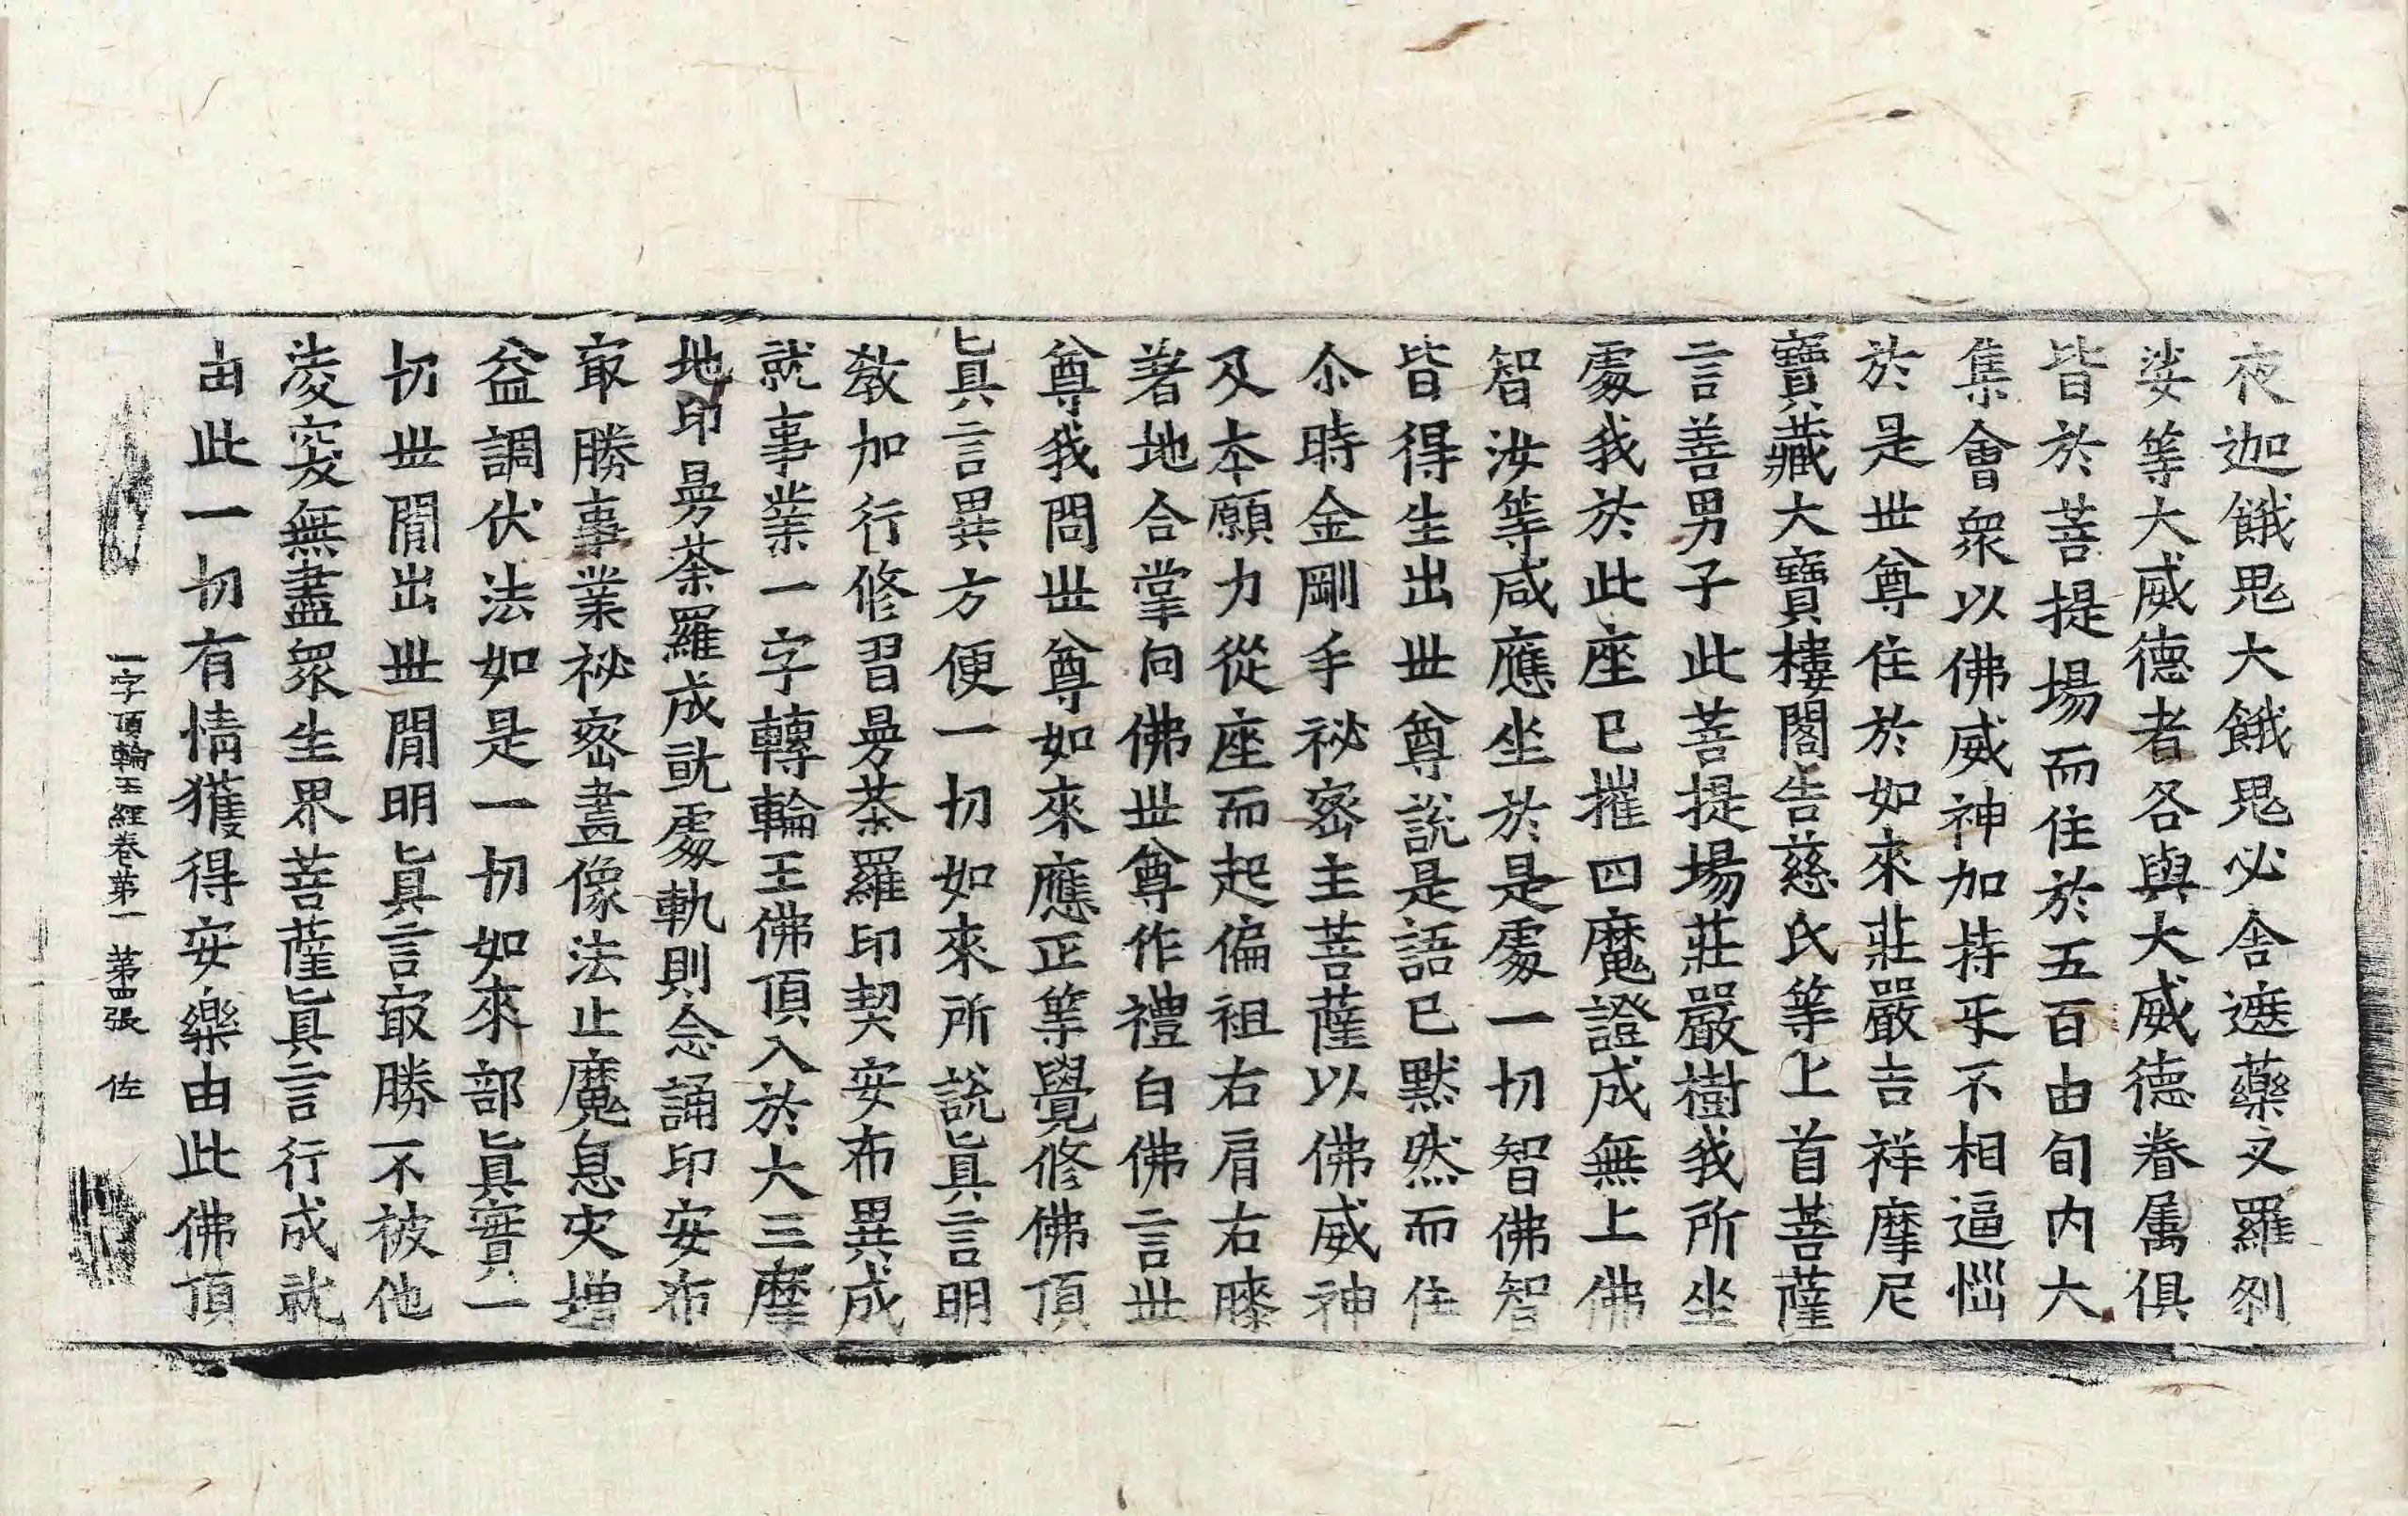 夜迦餓鬼大餓鬼必舍遮藥叉羅刹
娑等大威德者各與大威德眷属俱
皆於菩提場而住於五百由旬内大
集會衆以佛威神加持乎不相逼惱
於是世尊住於如來莊嚴吉祥摩尼
寶藏大寶樓閣告慈氏等上首菩薩
言善男子此菩提場莊嚴樹我所坐
處我於此座已摧四魔證成無上佛
智汝等咸應坐於是處一切智佛智
皆得生出世尊說是語已黙然而住
尒時金剛手祕密主菩薩以佛威神
及本願力從座而起偏袒右肩右膝
著地合掌向佛世尊作禮白佛言世
尊我問世尊如來應正等覺修佛頂
眞言異方便一切如來所說眞言明
教加行修習曼荼羅印契安布異成
就事業一字轉輪王佛頂入於大三摩
地印曼荼羅成就處軌則念誦印安布
㝡勝事業祕密畫像法止魔息灾增
益調伏法如是一切如來部眞實一
切世閒出世閒明眞言㝡勝不被他
淩突無盡衆生界菩薩眞言行成就
由此一切有情獲得安樂由此佛頂
一字頂輪王經卷第一 第四張 佐